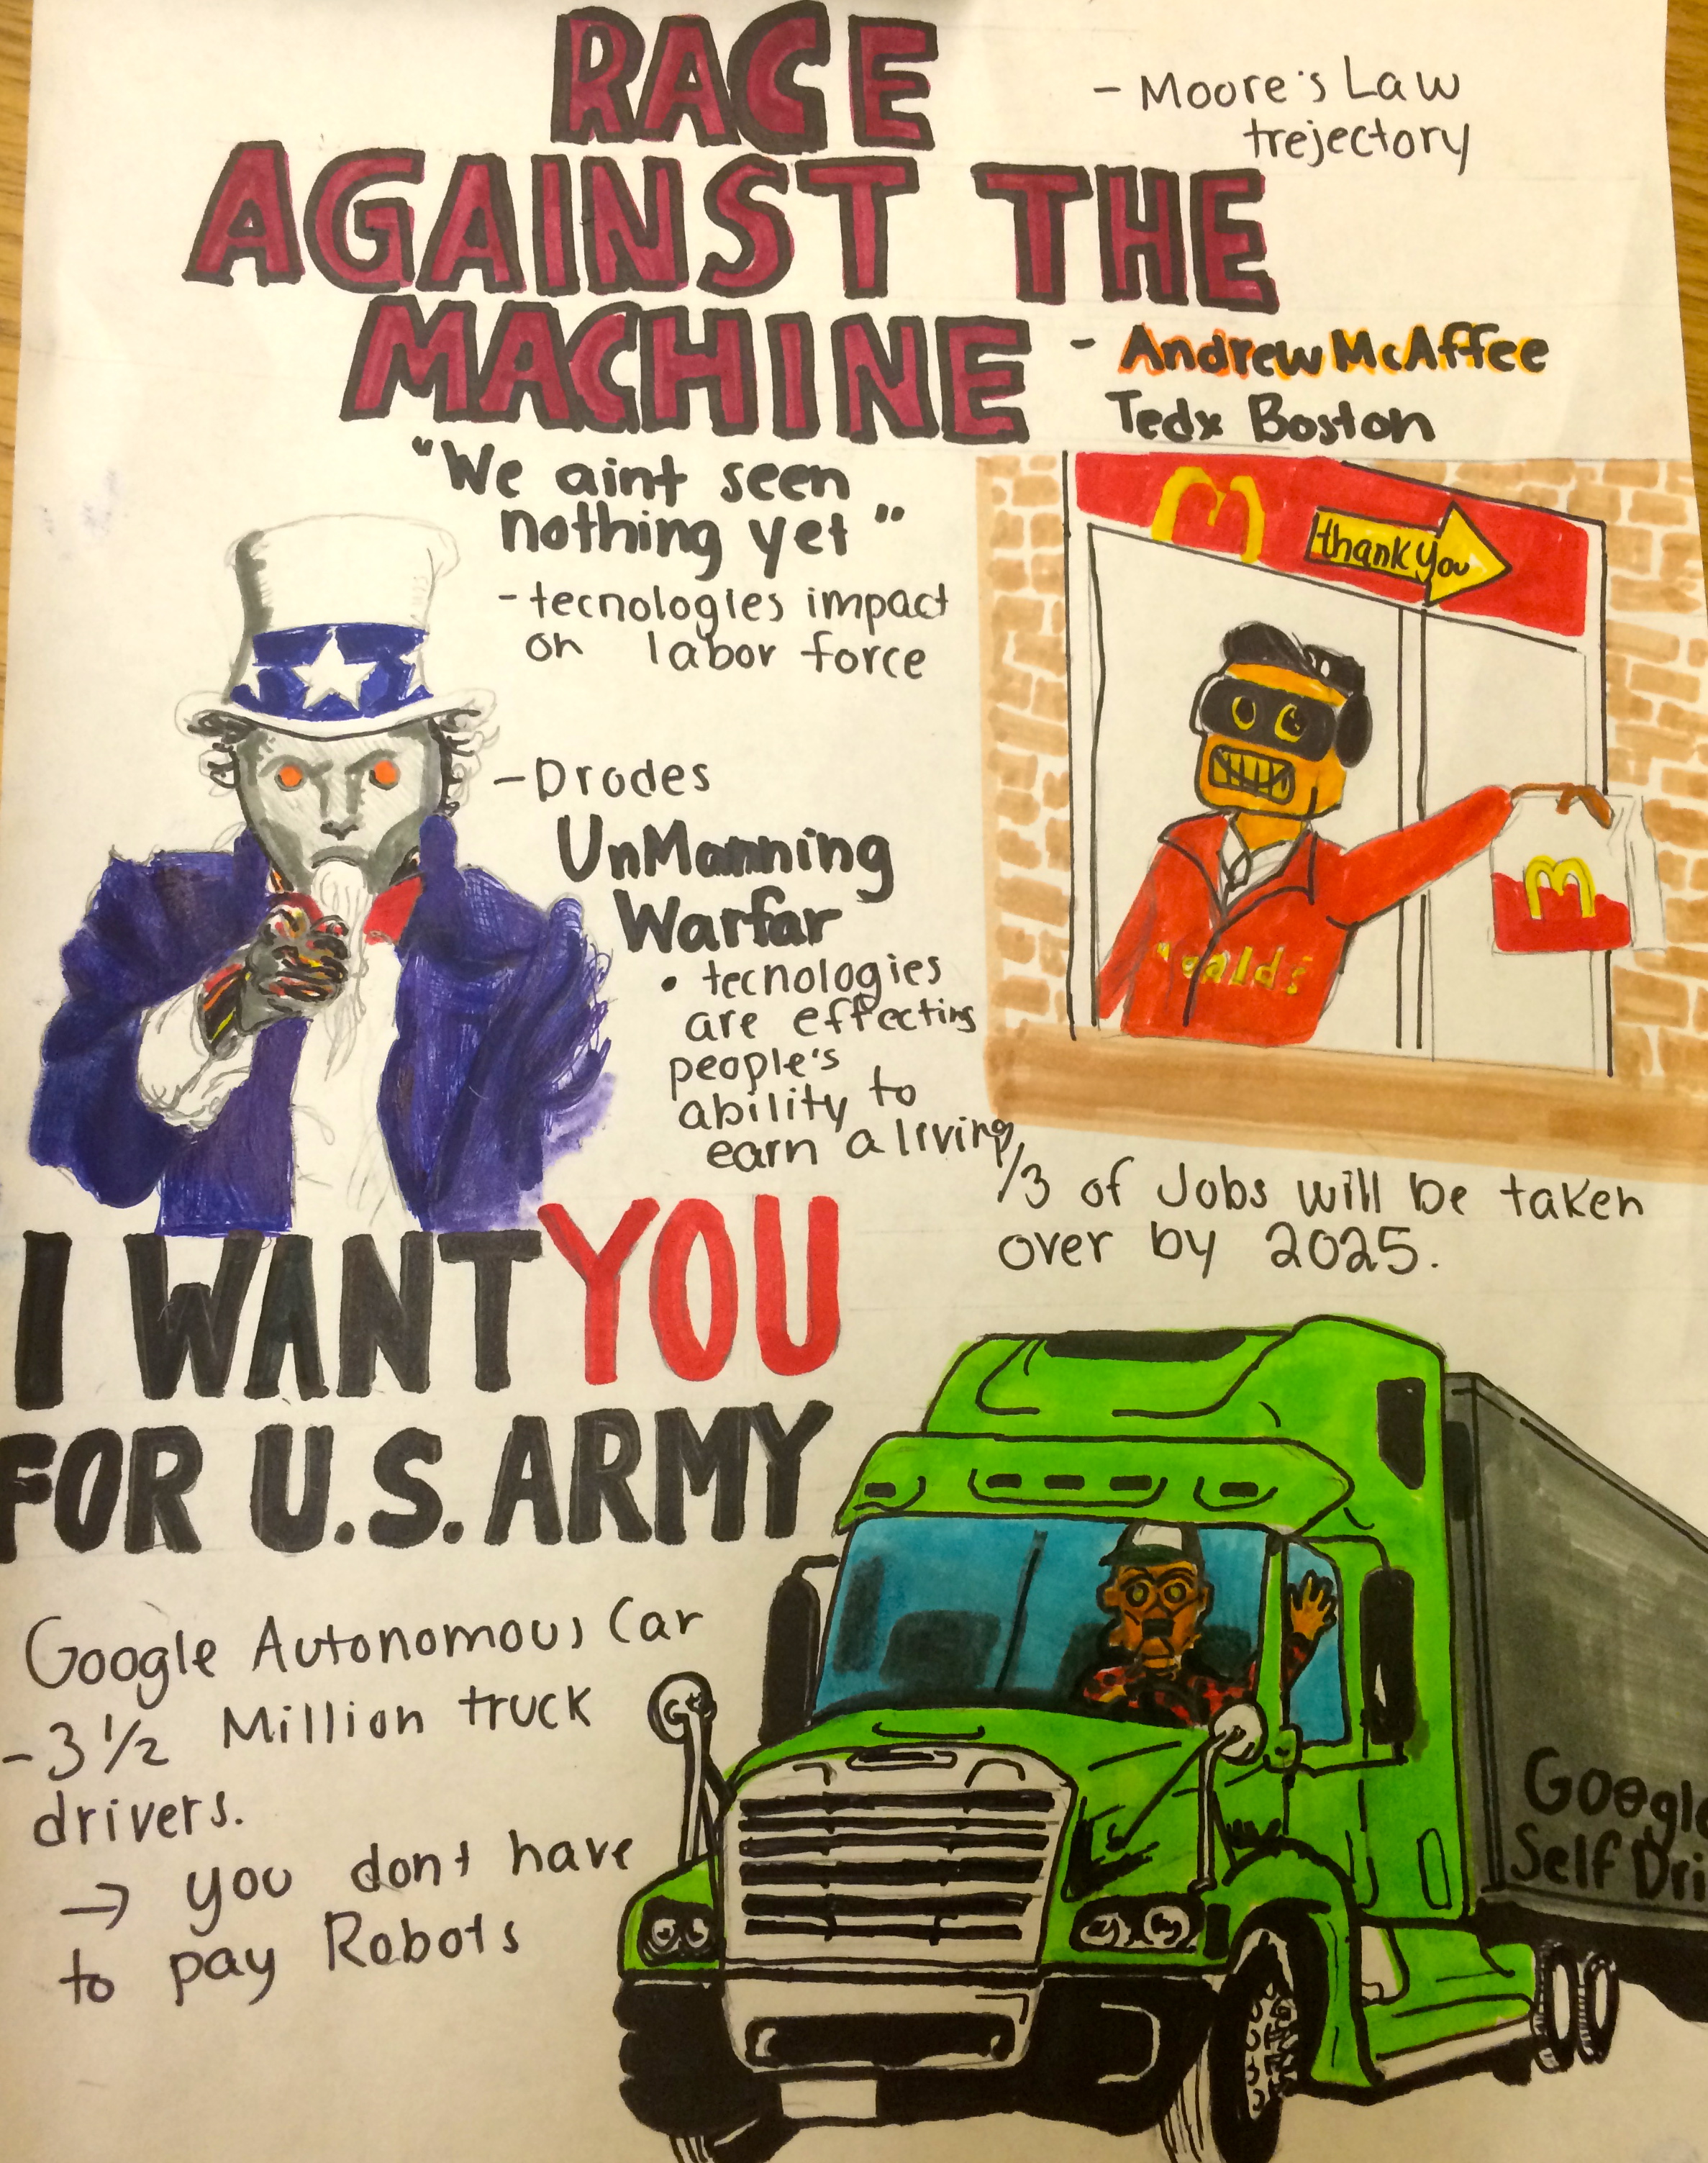 RACE
AGAINST THE
MACHINE
- Moore's Law
trejectory
- Andrew McAffee
Tedx Boston
"We aint seen
nothing yet"
- tecnologies impact
on labor force
thank you
- Drodes
UnManning
Warfar
• tecnologies
are effecting
people's
ability to
earn a living
alds
1/3 of Jobs will be taken
over by 2025.
I WANT YOU
FOR U.S. ARMY
Google Autonomous Car
- 3 1/2 Million truck
drivers.
→ you dont have
to pay Robots
Google
Self Dri